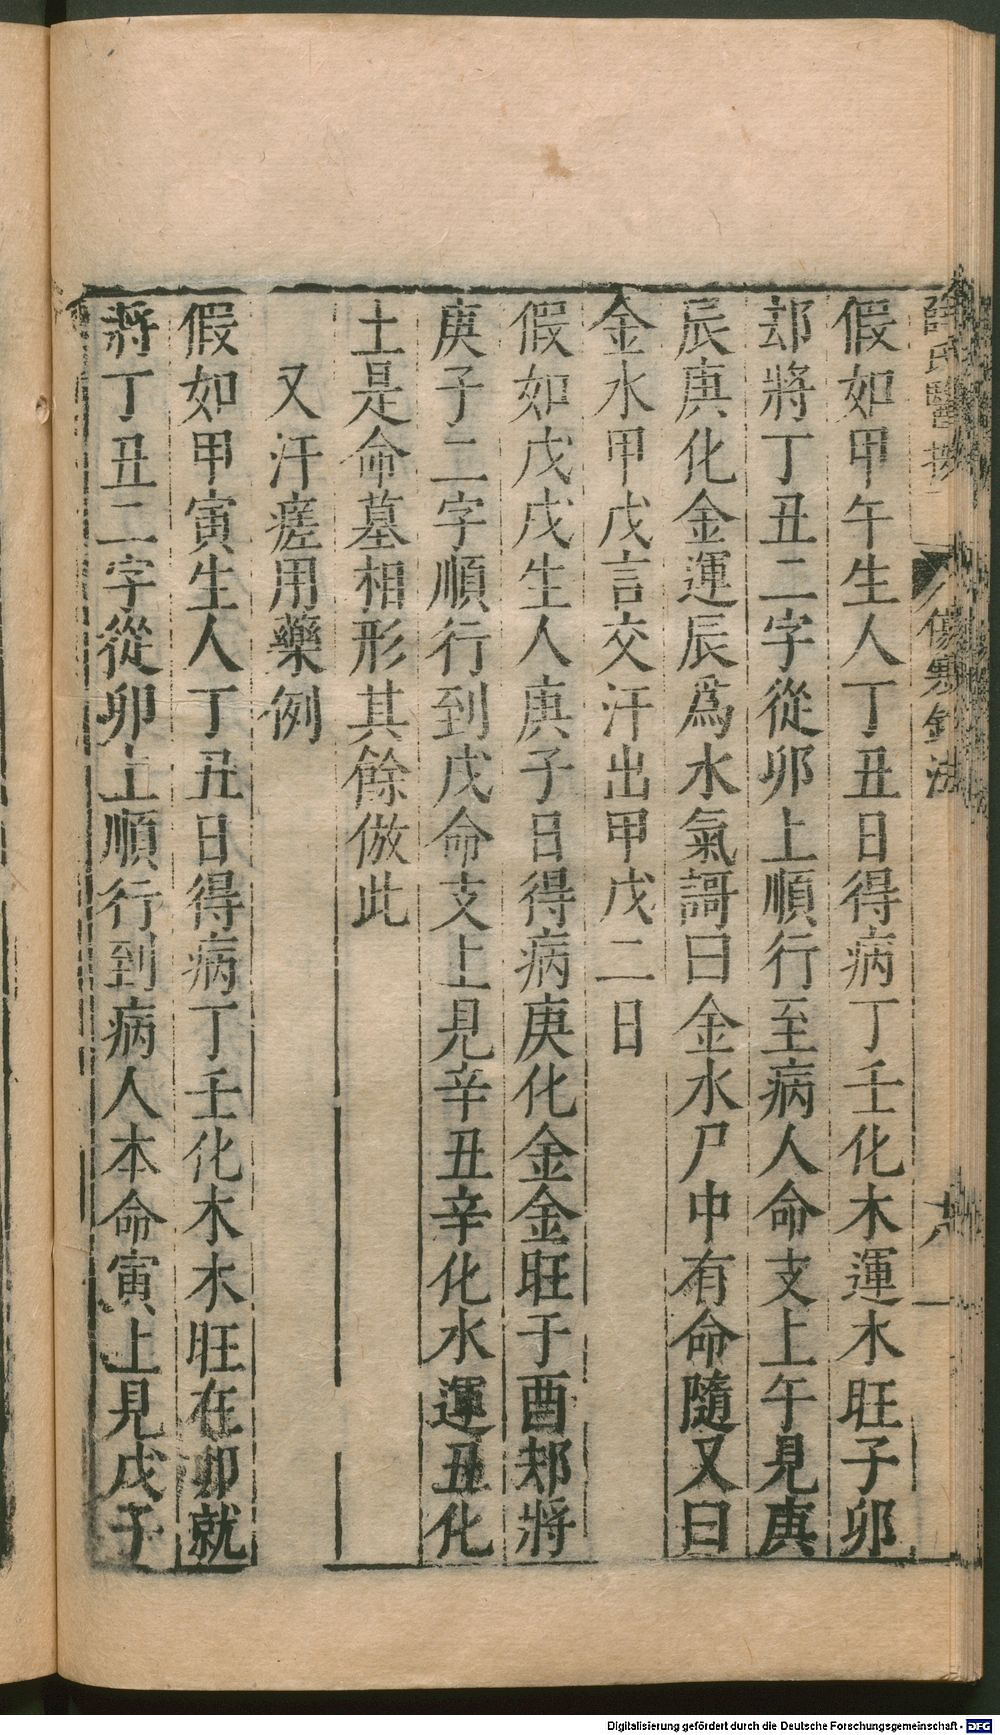 薛氏醫按 傷寒鈐法
假如甲午生人丁丑日得病丁壬化木運木旺子卯
却將丁丑二字從卯上順行至病人命支上午見庚
辰庚化金運辰爲水氣謌曰金水尸中有命隨又曰
金水甲戊言交汗出甲戊二日
假如戊戌生人庚子日得病庚化金金旺于酉却將
庚子二字順行到戌命支上見辛丑辛化水運丑化
土是命墓相形其餘倣此
又汗瘥用藥例
假如甲寅生人丁丑日得病丁壬化木木旺在卯就
將丁丑二字從卯上順行到病人本命寅上見戊子
Digitalisierung gefördert durch die Deutsche Forschungsgemeinschaft - DFG